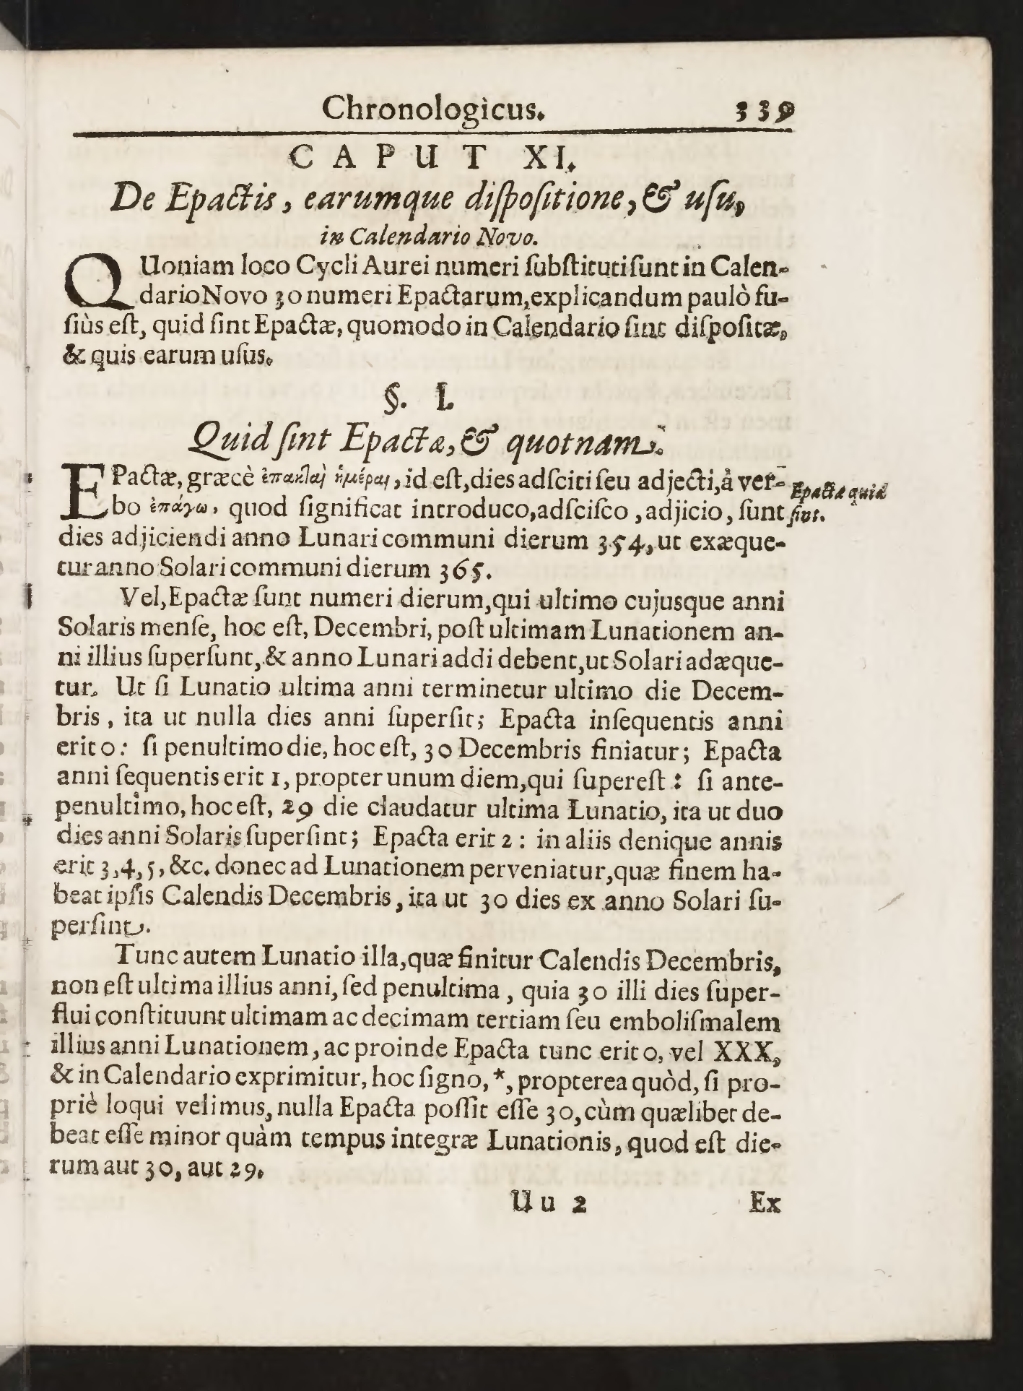 Chronologicus. 339
CAPUT XI.
De Epactis, earumque diſpoſitione, & uſu,
in Calendario Novo.
QUoniam loco Cycli Aurei numeri ſubſtituti ſunt in Calen-
dario Novo 30 numeri Epactarum, explicandum paulò fu-
ſiùs eſt, quid ſint Epactæ, quomodo in Calendario ſint diſpoſitæ,
& quis earum uſus.
§. I.
Quid ſint Epactæ, & quotnam.
EPactæ, græcè ἐπακταὶ ἡμέραι, id eſt, dies adſciti ſeu adjecti, à ver-
bo ἐπάγω, quod ſignificat introduco, adſciſco, adjicio, ſunt
Epactæ quid
ſint.
dies adjiciendi anno Lunari communi dierum 354, ut exæque-
tur anno Solari communi dierum 365.
Vel, Epactæ ſunt numeri dierum, qui ultimo cujusque anni
Solaris menſe, hoc eſt, Decembri, poſt ultimam Lunationem an-
ni illius ſuperſunt, & anno Lunari addi debent, ut Solari adæque-
tur. Ut ſi Lunatio ultima anni terminetur ultimo die Decem-
bris, ita ut nulla dies anni ſuperſit; Epacta inſequentis anni
erit 0: ſi penultimo die, hoc eſt, 30 Decembris finiatur; Epacta
anni ſequentis erit 1, propter unum diem, qui ſupereſt: ſi ante-
penultimo, hoc eſt, 29 die claudatur ultima Lunatio, ita ut duo
dies anni Solaris ſuperſint; Epacta erit 2: in aliis denique annis
erit 3, 4, 5, &c. donec ad Lunationem perveniatur, quæ finem ha-
beat ipſis Calendis Decembris, ita ut 30 dies ex anno Solari ſu-
perſint.
Tunc autem Lunatio illa, quæ finitur Calendis Decembris,
non eſt ultima illius anni, ſed penultima, quia 30 illi dies ſuper-
flui conſtituunt ultimam ac decimam tertiam ſeu emboliſmalem
illius anni Lunationem, ac proinde Epacta tunc erit 0, vel XXX,
& in Calendario exprimitur, hoc ſigno, *, propterea quòd, ſi pro-
priè loqui velimus, nulla Epacta poſſit eſſe 30, cùm quælibet de-
beat eſſe minor quàm tempus integræ Lunationis, quod eſt die-
rum aut 30, aut 29.
Uu 2 Ex